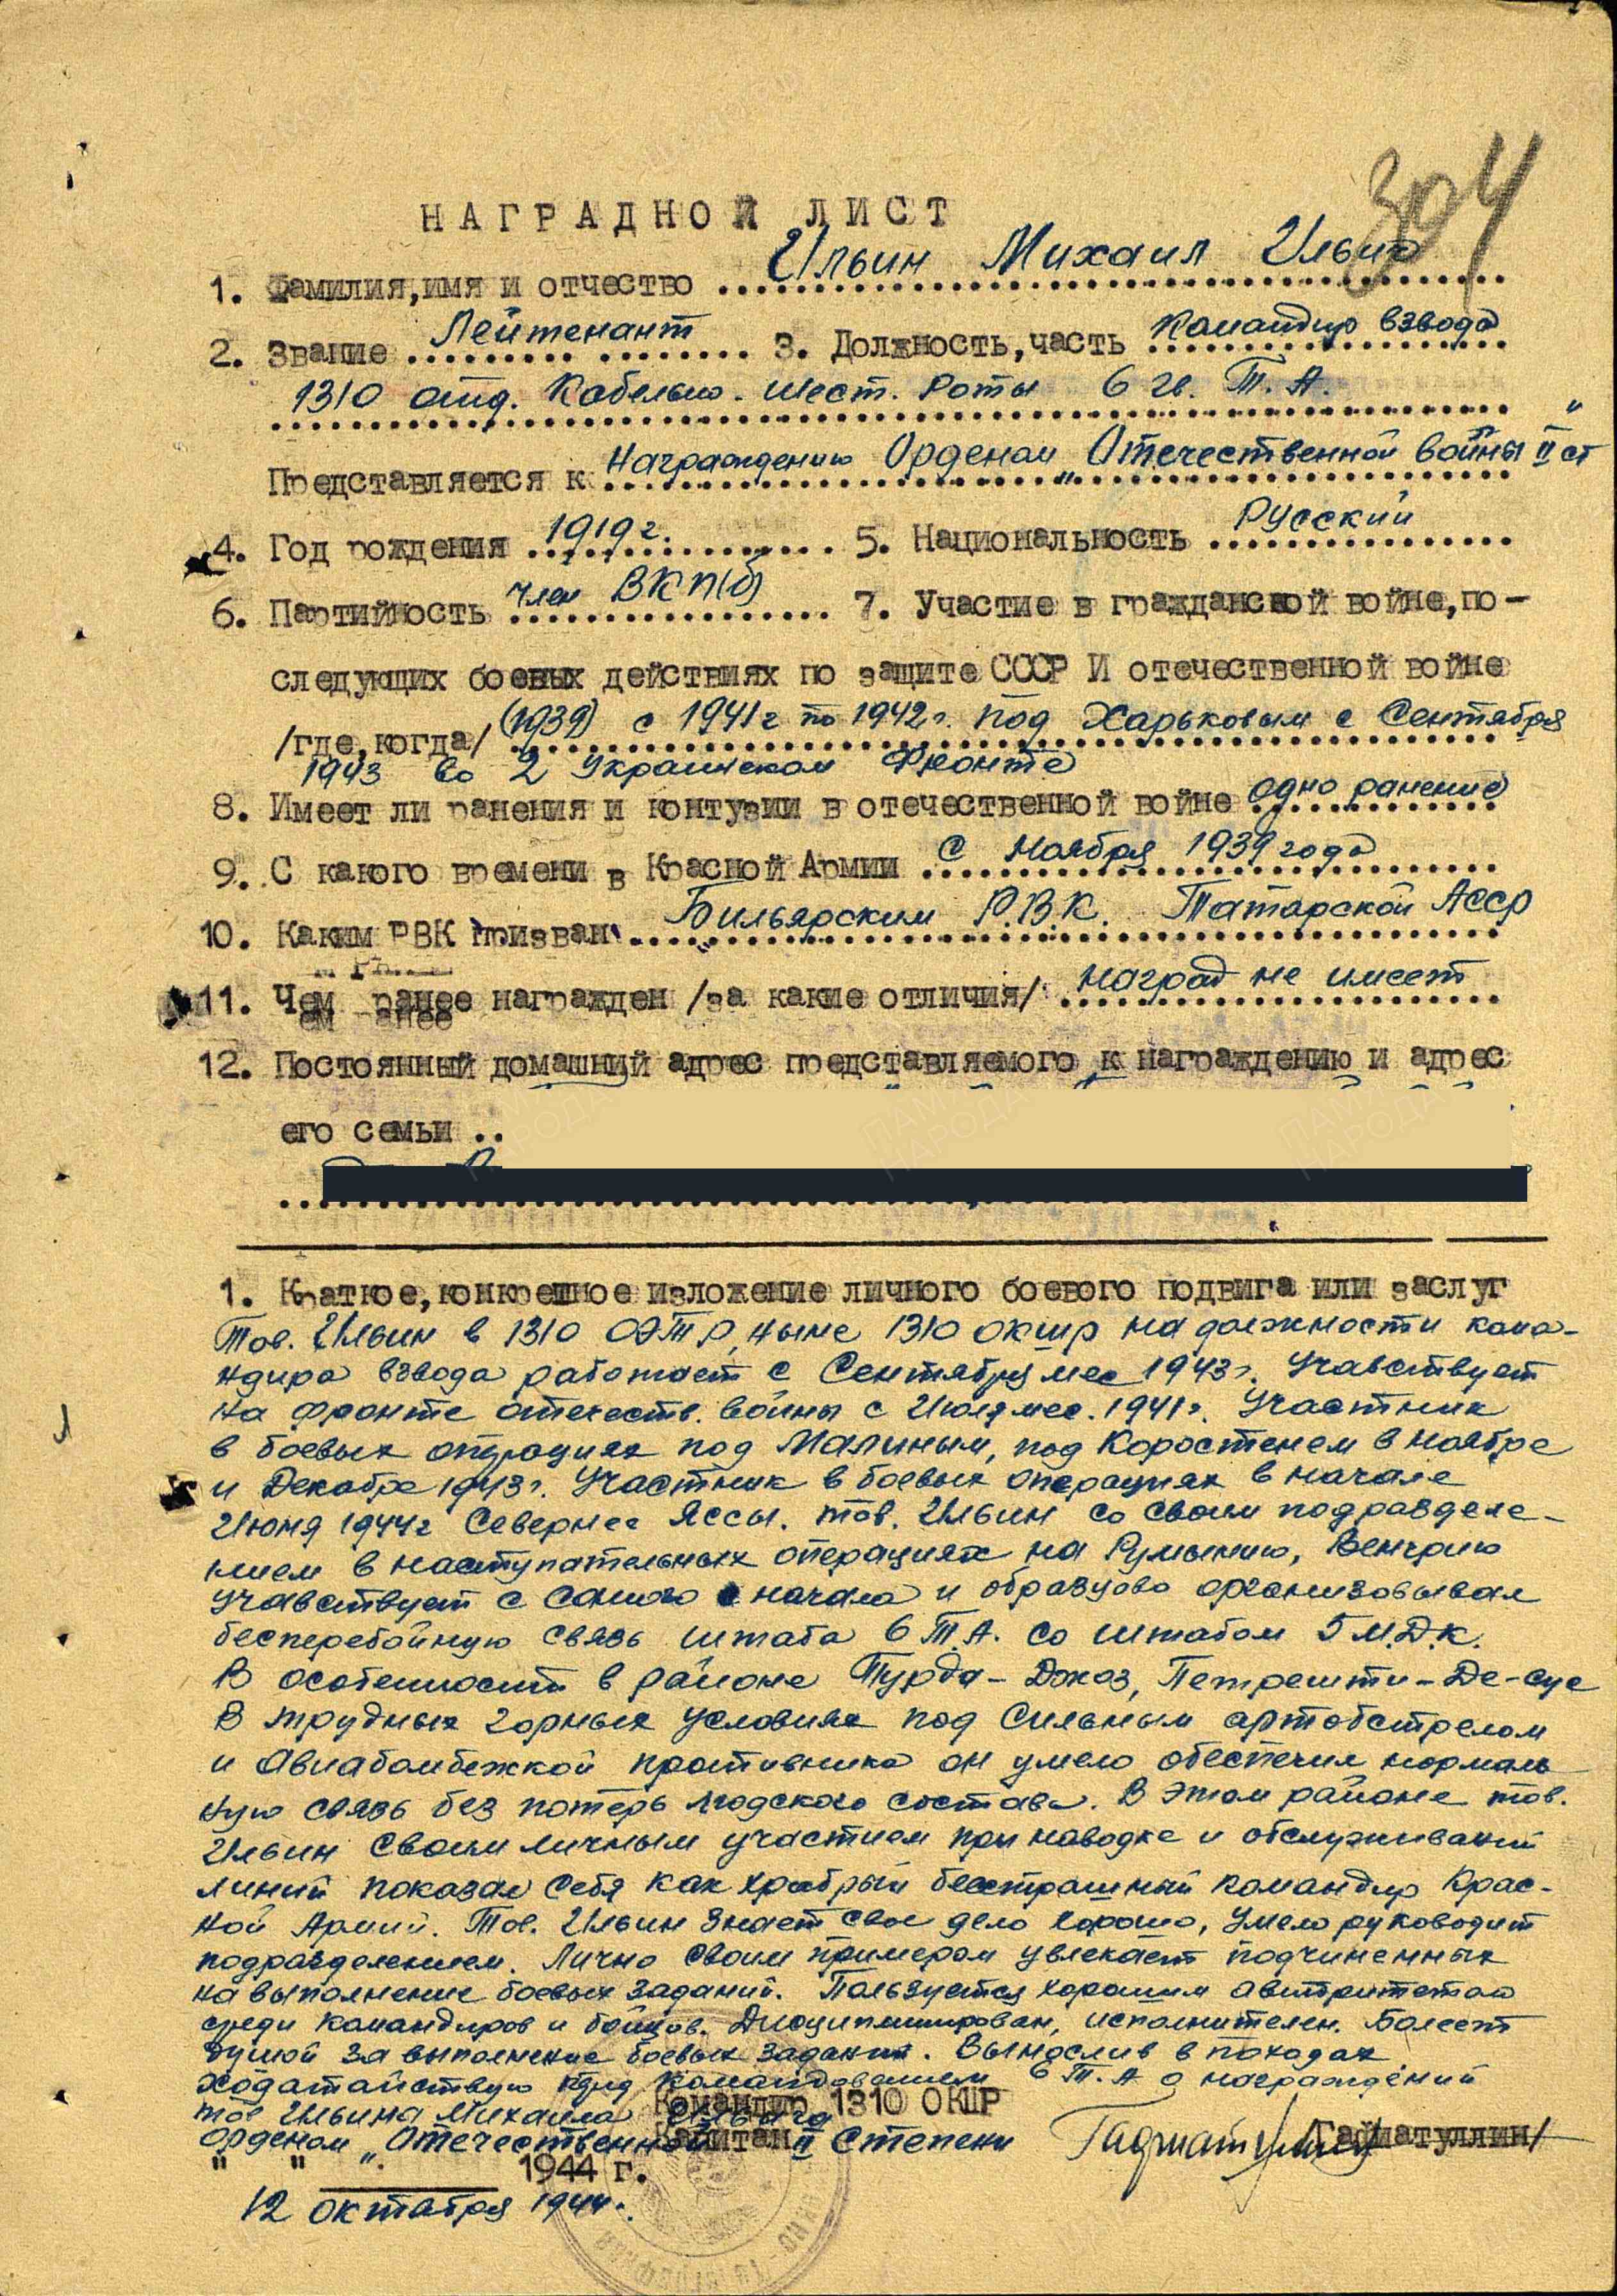 304
НАГРАДНОЙ ЛИСТ
1. Фамилия,имя и отчество Ильин Михаил Ильич
2. Звание Лейтенант 3. Должность,часть Командир взвода
1310 отд. Кабельно-шест. Роты 6 гв. Т.А.
Представляется к Награждению Орденом „Отечественной войны II ст"
4. Год рождения 1919 г. 5. Национальность Русский
6. Партийность член ВКП(б) 7. Участие в гражданской войне,по-
следующих боевых действиях по защите СССР И отечественной войне
/где,когда/ (1939) с 1941 г по 1942 г. под Харьковым с Сентября
1943 во 2 Украинском Фронте
8. Имеет ли ранения и контузии в отечественной войне одно ранение
9. С какого времени в Красной Армии С Ноября 1939 года
10. Каким РВК призван Бильярским Р.В.К. Татарской Асср
11. Чем ранее награжден /за какие отличия/ Наград не имеет
12. Постоянный домашний адрес представляемого к награждению и адрес
его семьи
1. Краткое,конкретное изложение личного боевого подвига или заслуг
Тов. Ильин в 1310 ОЭТР, ныне 1310 окшр на должности кома-
ндира взвода работает с Сентября мес 1943 г. Учавствует
на фронте отечеств. войны с Июля мес. 1941 г. Участник
в боевых операциях под Малиным, под Коростенем в ноябре
и Декабре 1943 г. Участник в боевых операциях в начале
Июня 1944 г Севернее Яссы. тов. Ильин со своим подразделе-
нием в наступательных операциях на Румынию, Венгрию
учавствует с самого начала и образцово организовывал
бесперебойную связь штаба 6 Т.А. со штабом 5 М.Д.К.
В особенности в районе Турда - Джоз, Петрешти - Де - сус
В трудных горных условиях под сильным артобстрелом
и Авиабомбежкой противника он умело обеспечил нормаль
ную связь без потерь людского состава. В этом районе тов.
Ильин своим личным участием при наводке и обслуживаний
линий показал себя как храбрый бесстрашный командир Крас-
ной Армий. Тов. Ильин знает свое дело хорошо, умело руководит
подразделением. Лично своим примером увлекает подчиненных
на выполнение боевых заданий. Пользуется хорошим авторитетом
среди командиров и бойцов. Дисциплинирован, исполнителен. Болеет
душой за выполнение боевых заданий. Вынослив в походах
Ходатайствую пред командованием 6 Т.А о награждений
тов Ильина Михаила Ильича Командир 1310 ОКШР
орденом „Отечественной II Степени Капитан /Гафиатуллин/
" " 1944 г.
12 октября 1944 г.